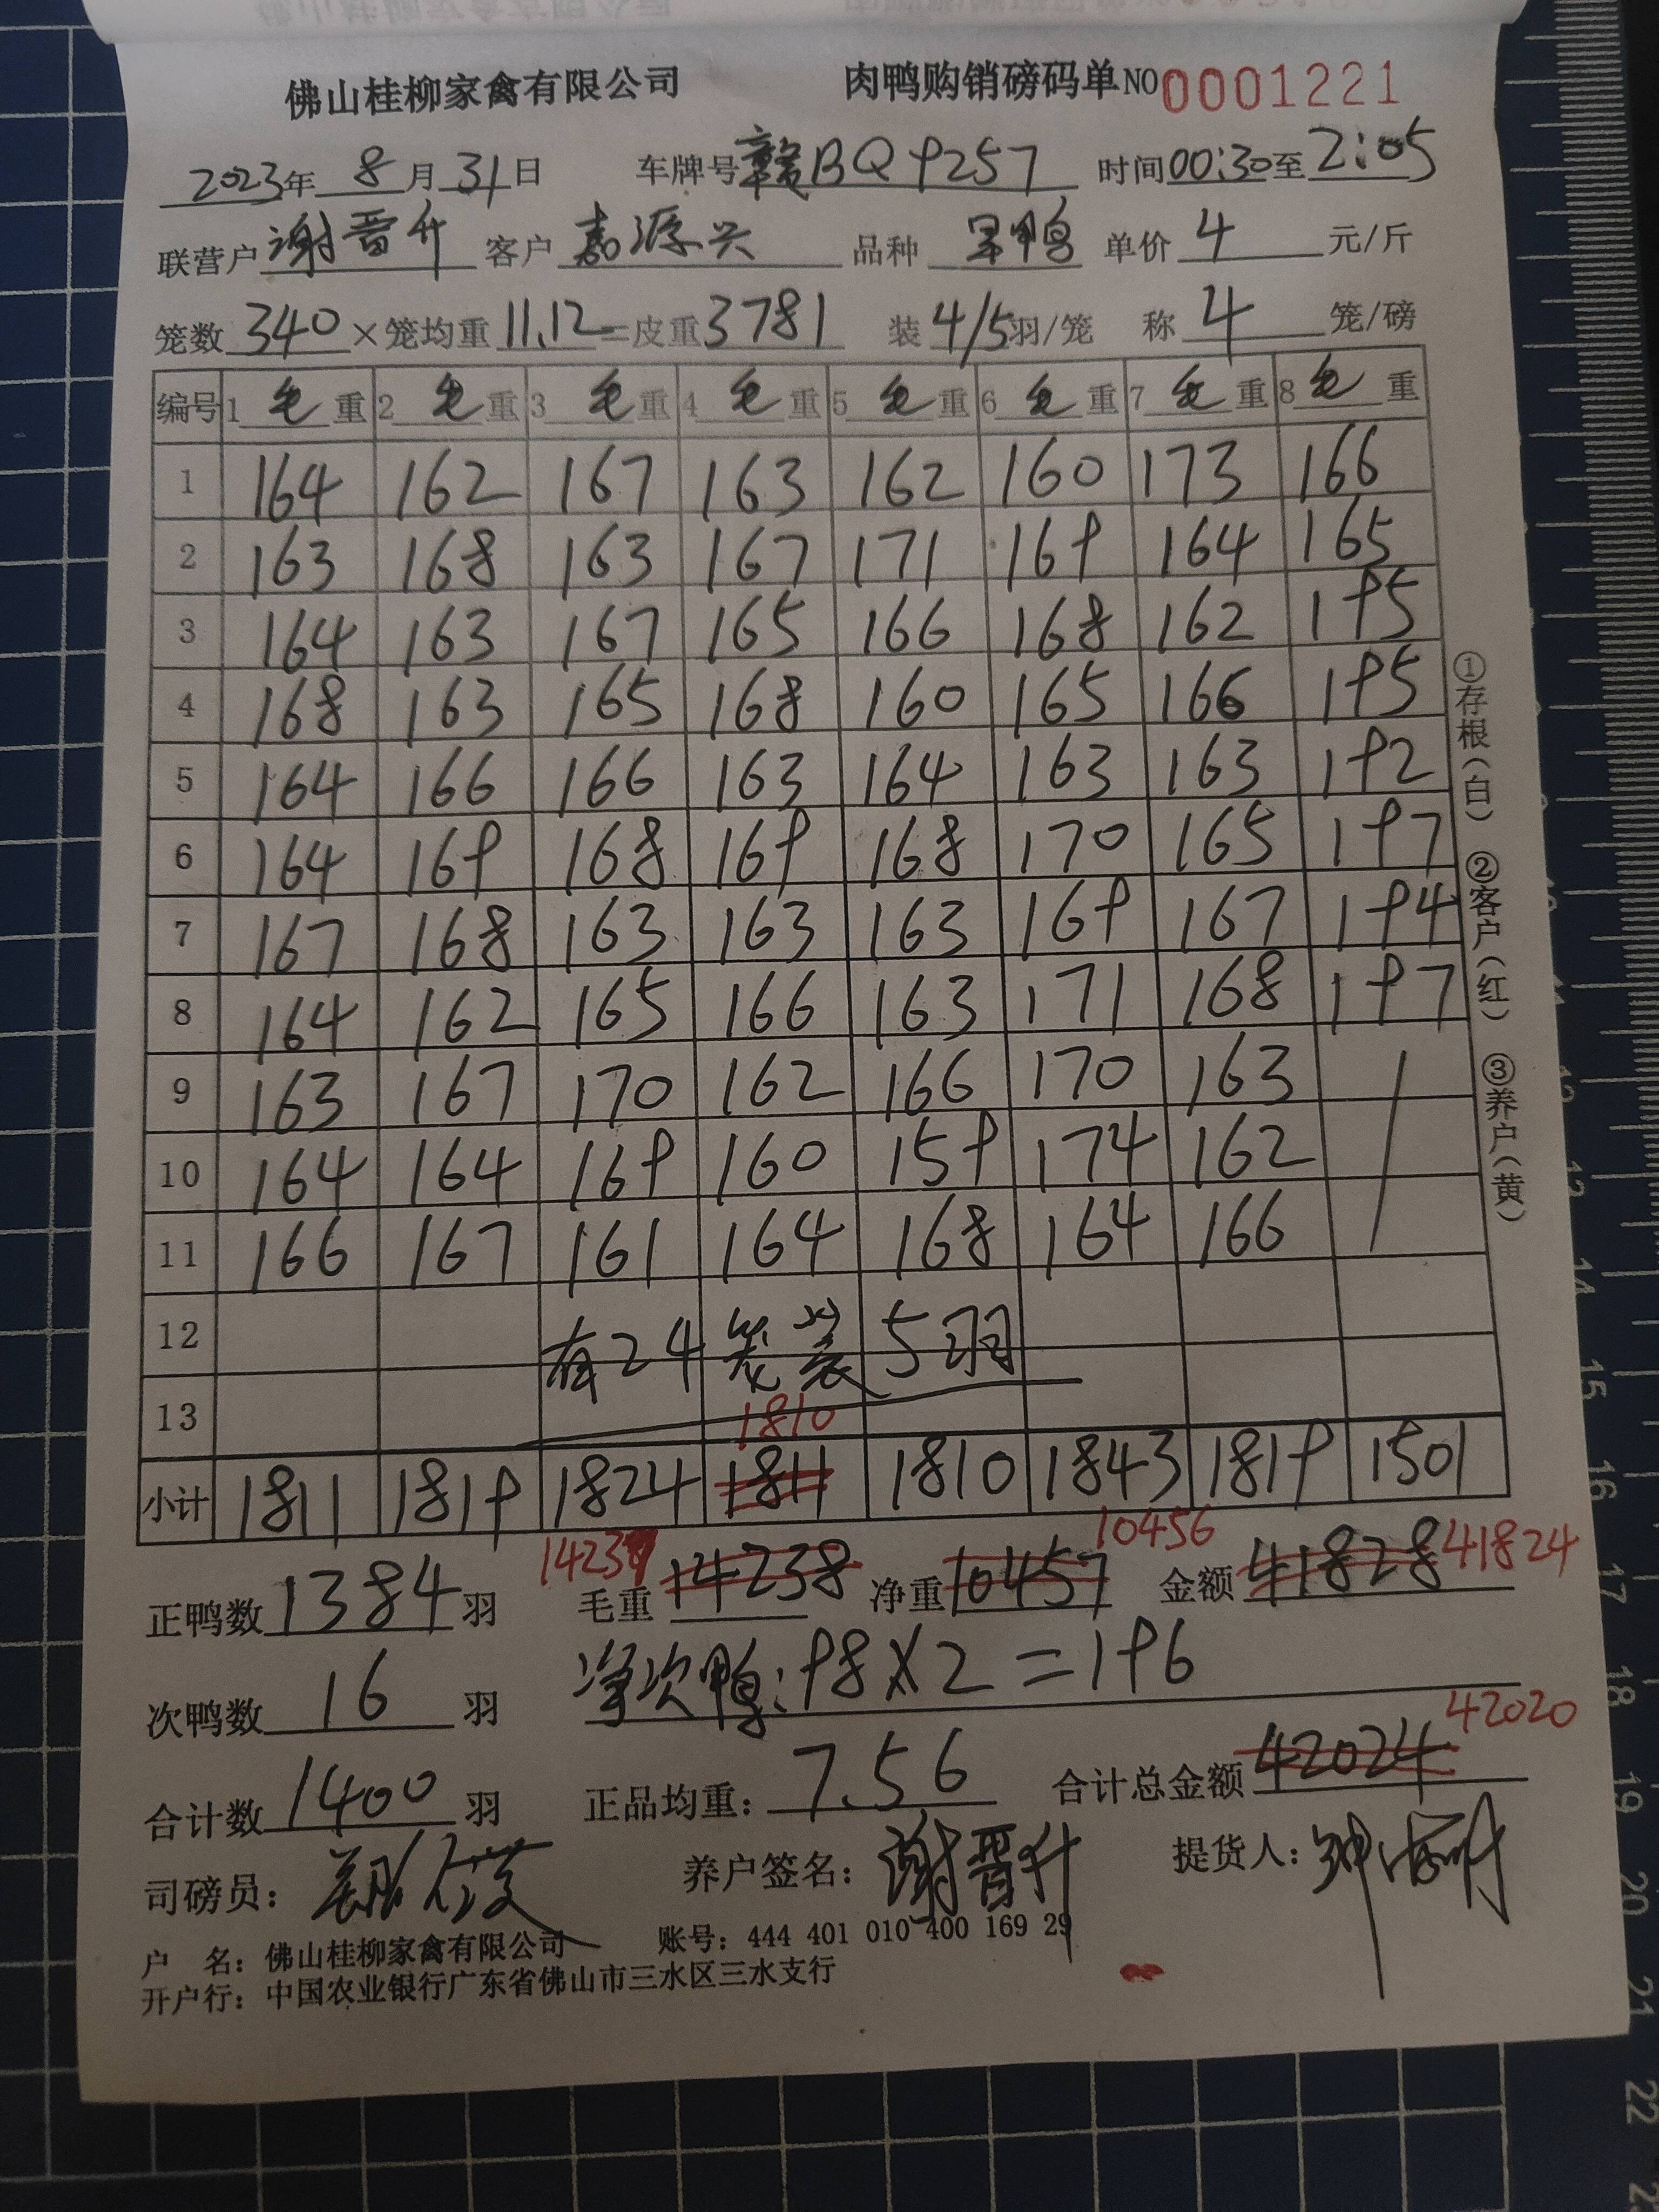 佛山桂柳家禽有限公司 肉鸭购销磅码单NO 0001221
2023年 8 月 31 日 车牌号 赣BQ9257 时间 00:30 至 2:05
联营户 谢晋升 客户 嘉源兴 品种 单价 4 元/斤
笼数 340 ×笼均重 11.12 =皮重 3781 装 4/5 羽/笼 称 4 笼/磅
编号 1 毛 重 2 毛 重 3 毛 重 4 毛 重 5 毛 重 6 毛 重 7 毛 重 8 毛 重
1 164 162 167 163 162 160 173 166
2 163 168 163 167 171 169 164 165
3 164 163 167 165 166 168 162 195
4 168 163 165 168 160 165 166 195
5 164 166 166 163 164 163 163 192
6 164 169 168 169 168 170 165 197
7 167 168 163 163 163 169 167 194
8 164 162 165 166 163 171 168 197
9 163 167 170 162 166 170 163
10 164 164 169 160 159 174 162
11 166 167 161 164 168 164 166
12 有24笼装5羽
13 1810
小计 1811 1819 1824 1811 1810 1843 1819 1501
14237 10456 41824
正鸭数 1384 羽 毛重 14238 净重 10457 金额 41828
次鸭数 16 羽 净次鸭:98×2=196
42020
合计数 1400 羽 正品均重: 7.56 合计总金额 42024
司磅员: 养户签名: 谢晋升 提货人:
户 名: 佛山桂柳家禽有限公司 账号: 444 401 010 400 169 29
开户行: 中国农业银行广东省佛山市三水区三水支行
①存根(白) ②客户(红) ③养户(黄)